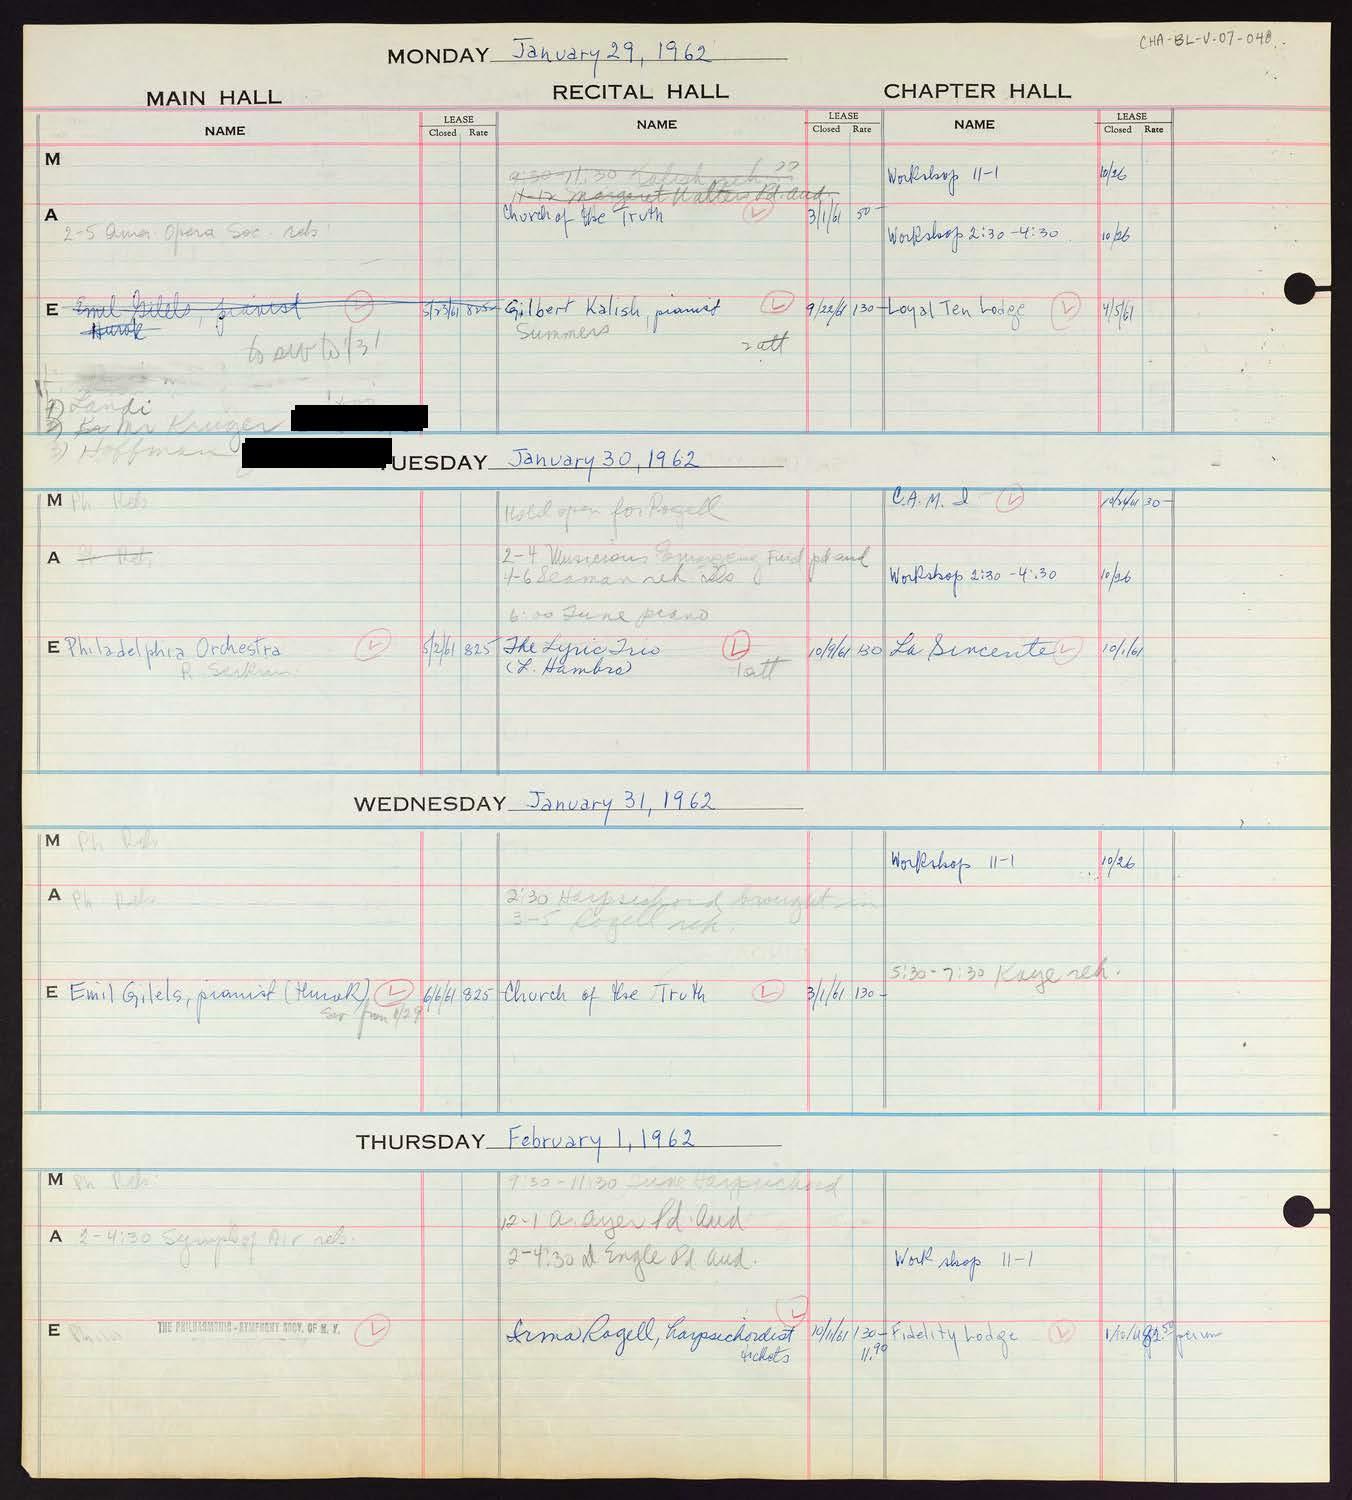 CHA-BL-V-07-048
MONDAY January 29, 1962
MAIN HALL RECITAL HALL CHAPTER HALL
NAME LEASE Closed Rate NAME LEASE Closed Rate NAME LEASE Closed Rate
M
9:30-11:30 Kalish reh ??
11-12 Margaret Walters Pd. aud.
Workshop 11-1 10/26
A
Church of the Truth L 3/1/61 50-
2-5 Amer. Opera Soc. reh
Workshop 2:30-4:30 10/26
E Emil Gilels, pianist L 5/23/61 825- Gilbert Kalish, pianist L 9/22/61 130- Loyal Ten Lodge L 4/5/61
Hurok Summers
to 1/31 2 att
1) Landi
2) Mr Kruger
3) Hoffman
TUESDAY January 30, 1962
M Ph Reh
Hold open for Rogell
C.A.M. I L 10/24/61 30-
A Ph Reh
2-4 Musicians Emergency Fund pd aud
4-6 Seaman reh
Workshop 2:30-4:30 10/26
6:00 Tune piano
E Philadelphia Orchestra L 5/2/61 825 The Lyric Trio L 10/9/61 130 La Sincente L 10/1/61
R. Serkin (L. Hambro) 1 att
WEDNESDAY January 31, 1962
M Ph Reh
Workshop 11-1 10/26
A Ph Reh
2:30 Harpsichord brought in
3-5 Rogell reh.
5:30-7:30 Kaye reh.
E Emil Gilels, pianist (Hurok) L 6/6/61 825 Church of the Truth L 3/1/61 130-
from 1/29
THURSDAY February 1, 1962
M Ph Reh.
9:30-11:30 Tune Harpsichord
12-1 A. Ayer Pd. Aud
A 2-4:30 Symph of Air reh.
2-4:30 Engle Pd aud.
Work shop 11-1
E THE PHILHARMONIC-SYMPHONY SOCY. OF N. Y. L Irma Rogell, harpsichordist L 10/11/61 130- Fidelity Lodge L 82.50
tickets 11.90